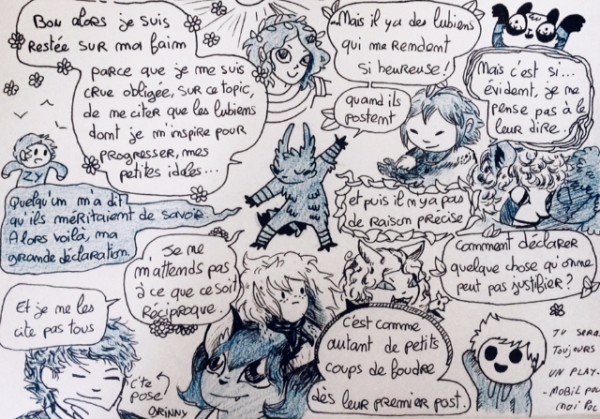 Bon alors je suis
restée sur ma faim
parce que je me suis
crue obligée, sur ce topic,
de me citer que les lubiens
dont je m'inspire pour
progresser, mes
petites idoles...
Mais il y a des lubiens
qui me rendent
si heureuse!
quand ils
postent
Mais c'est si...
évident, je me
pense pas à le
leur dire.
ZY
Quelqu'un m'a dit
qu'ils méritaient de savoir.
Alors voilà, ma
grande déclaration.
et puis il m'y a pas
de raison précise
Je me
m'attends pas
à ce que ce soit
réciproque.
Comment déclarer
quelque chose qu'on me
peut pas justifier?
Et je me les
cite pas tous
C'te
pose
Orinny
C'est comme
autant de petits
coups de foudre
dès leur premier post.
Tu seras
toujours
un play-
-mobil pour
moi